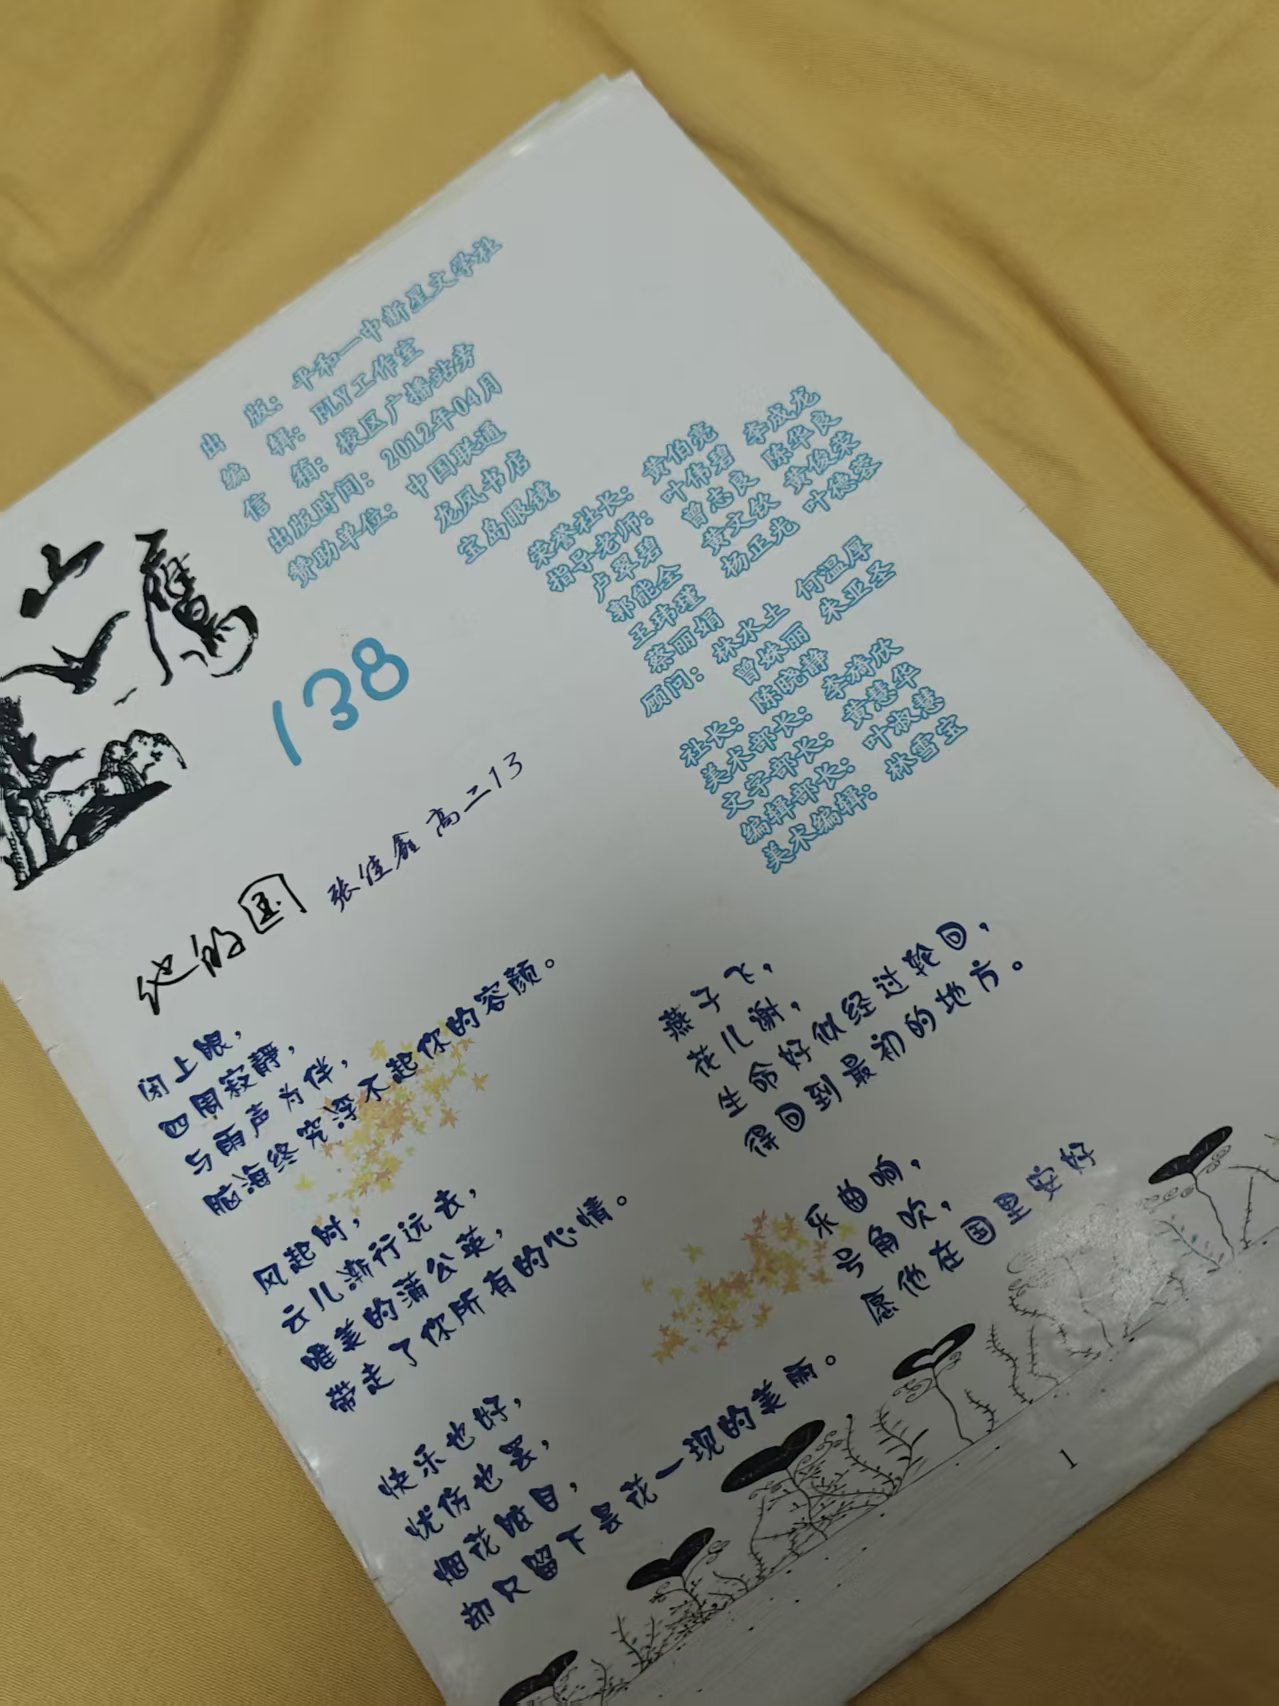 山鹰
138
出 版：平和一中新星文学社
编 辑：FLY工作室
信 箱：校区广播站旁
出版时间：2012年04月
赞助单位：中国联通
龙凤书店
宝岛眼镜
荣誉社长：黄伯亮 李成龙
指导老师：叶伟碧 陈华良
卢翠碧 曾志良 黄俊荣
郭能全 黄文钦 叶德蓉
王玮瑾 杨正光
蔡丽娟
顾问：林水土 何温厚
曾姝丽 朱亚圣
社长：陈晓静
美术部长：李旖欣
文字部长：黄慧华
编辑部长：叶淑慧
美术编辑：林雪宝
他的国 张佳鑫 高二13
闭上眼，
四周寂静，
与雨声为伴，
脑海终究浮不起你的容颜。
风起时，
云儿渐行远去，
唯美的蒲公英，
带走了你所有的心情。
快乐也好，
忧伤也罢，
烟花眩目，
却只留下昙花一现的美丽。
燕子飞，
花儿谢，
生命好似经过轮回，
得回到最初的地方。
乐曲响，
号角吹，
愿他在国里安好
1